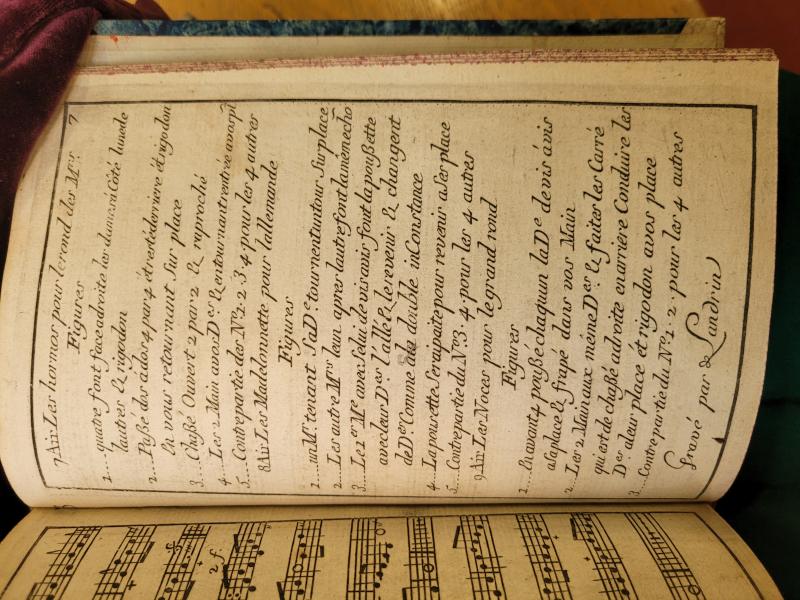 7 Air Les hormos pour lerond des M.rs 7
Figures
1... quatre font face adroite les dames ré Côté lunede
lautres & rigodon
2... Passé dos ados 4 par 4 étresté derriere ét rigodon
En vous retournant Sur place
3... Chassé Ouvert 2 par 2 & raproché
4... Les 2 Main avos D.es & entournant rentrée avos pl
5... Contrepartie des N.os 1. 2. 3. 4 pour les 4 autres
8 Air Les Madelonnette pour lallemande
Figures
1... un M.r tenant Sa D.e tournent un tour Sur place
2... Les autre M.rs leun aprer lautre font la mème cho
3... Le 1.er M.r avec Selui de vis avis font la poussette
avec leur D.es l'allé & le revenir & changent
de D.es Comme à la double inConstance
4... La pousette Sera ipaite pour revenir a Ses place
5... Contre partie du N.o 3. 4. pour les 4 autres
9 Air Les Noces pour le grand rond
Figures
1... En avant 4 poussé chaquun la D.e de vis ávis
a la place & frapé dans vos Main
2... Les 2 Main aux même D.es & faites les Carré
qui est de chassé adroite en arriere Conduire les
D.es a leur place et rigodon avos place
3... Contre partie du N.os 1. 2. pour les 4 autres
Gravé par de Landrin
2 f.